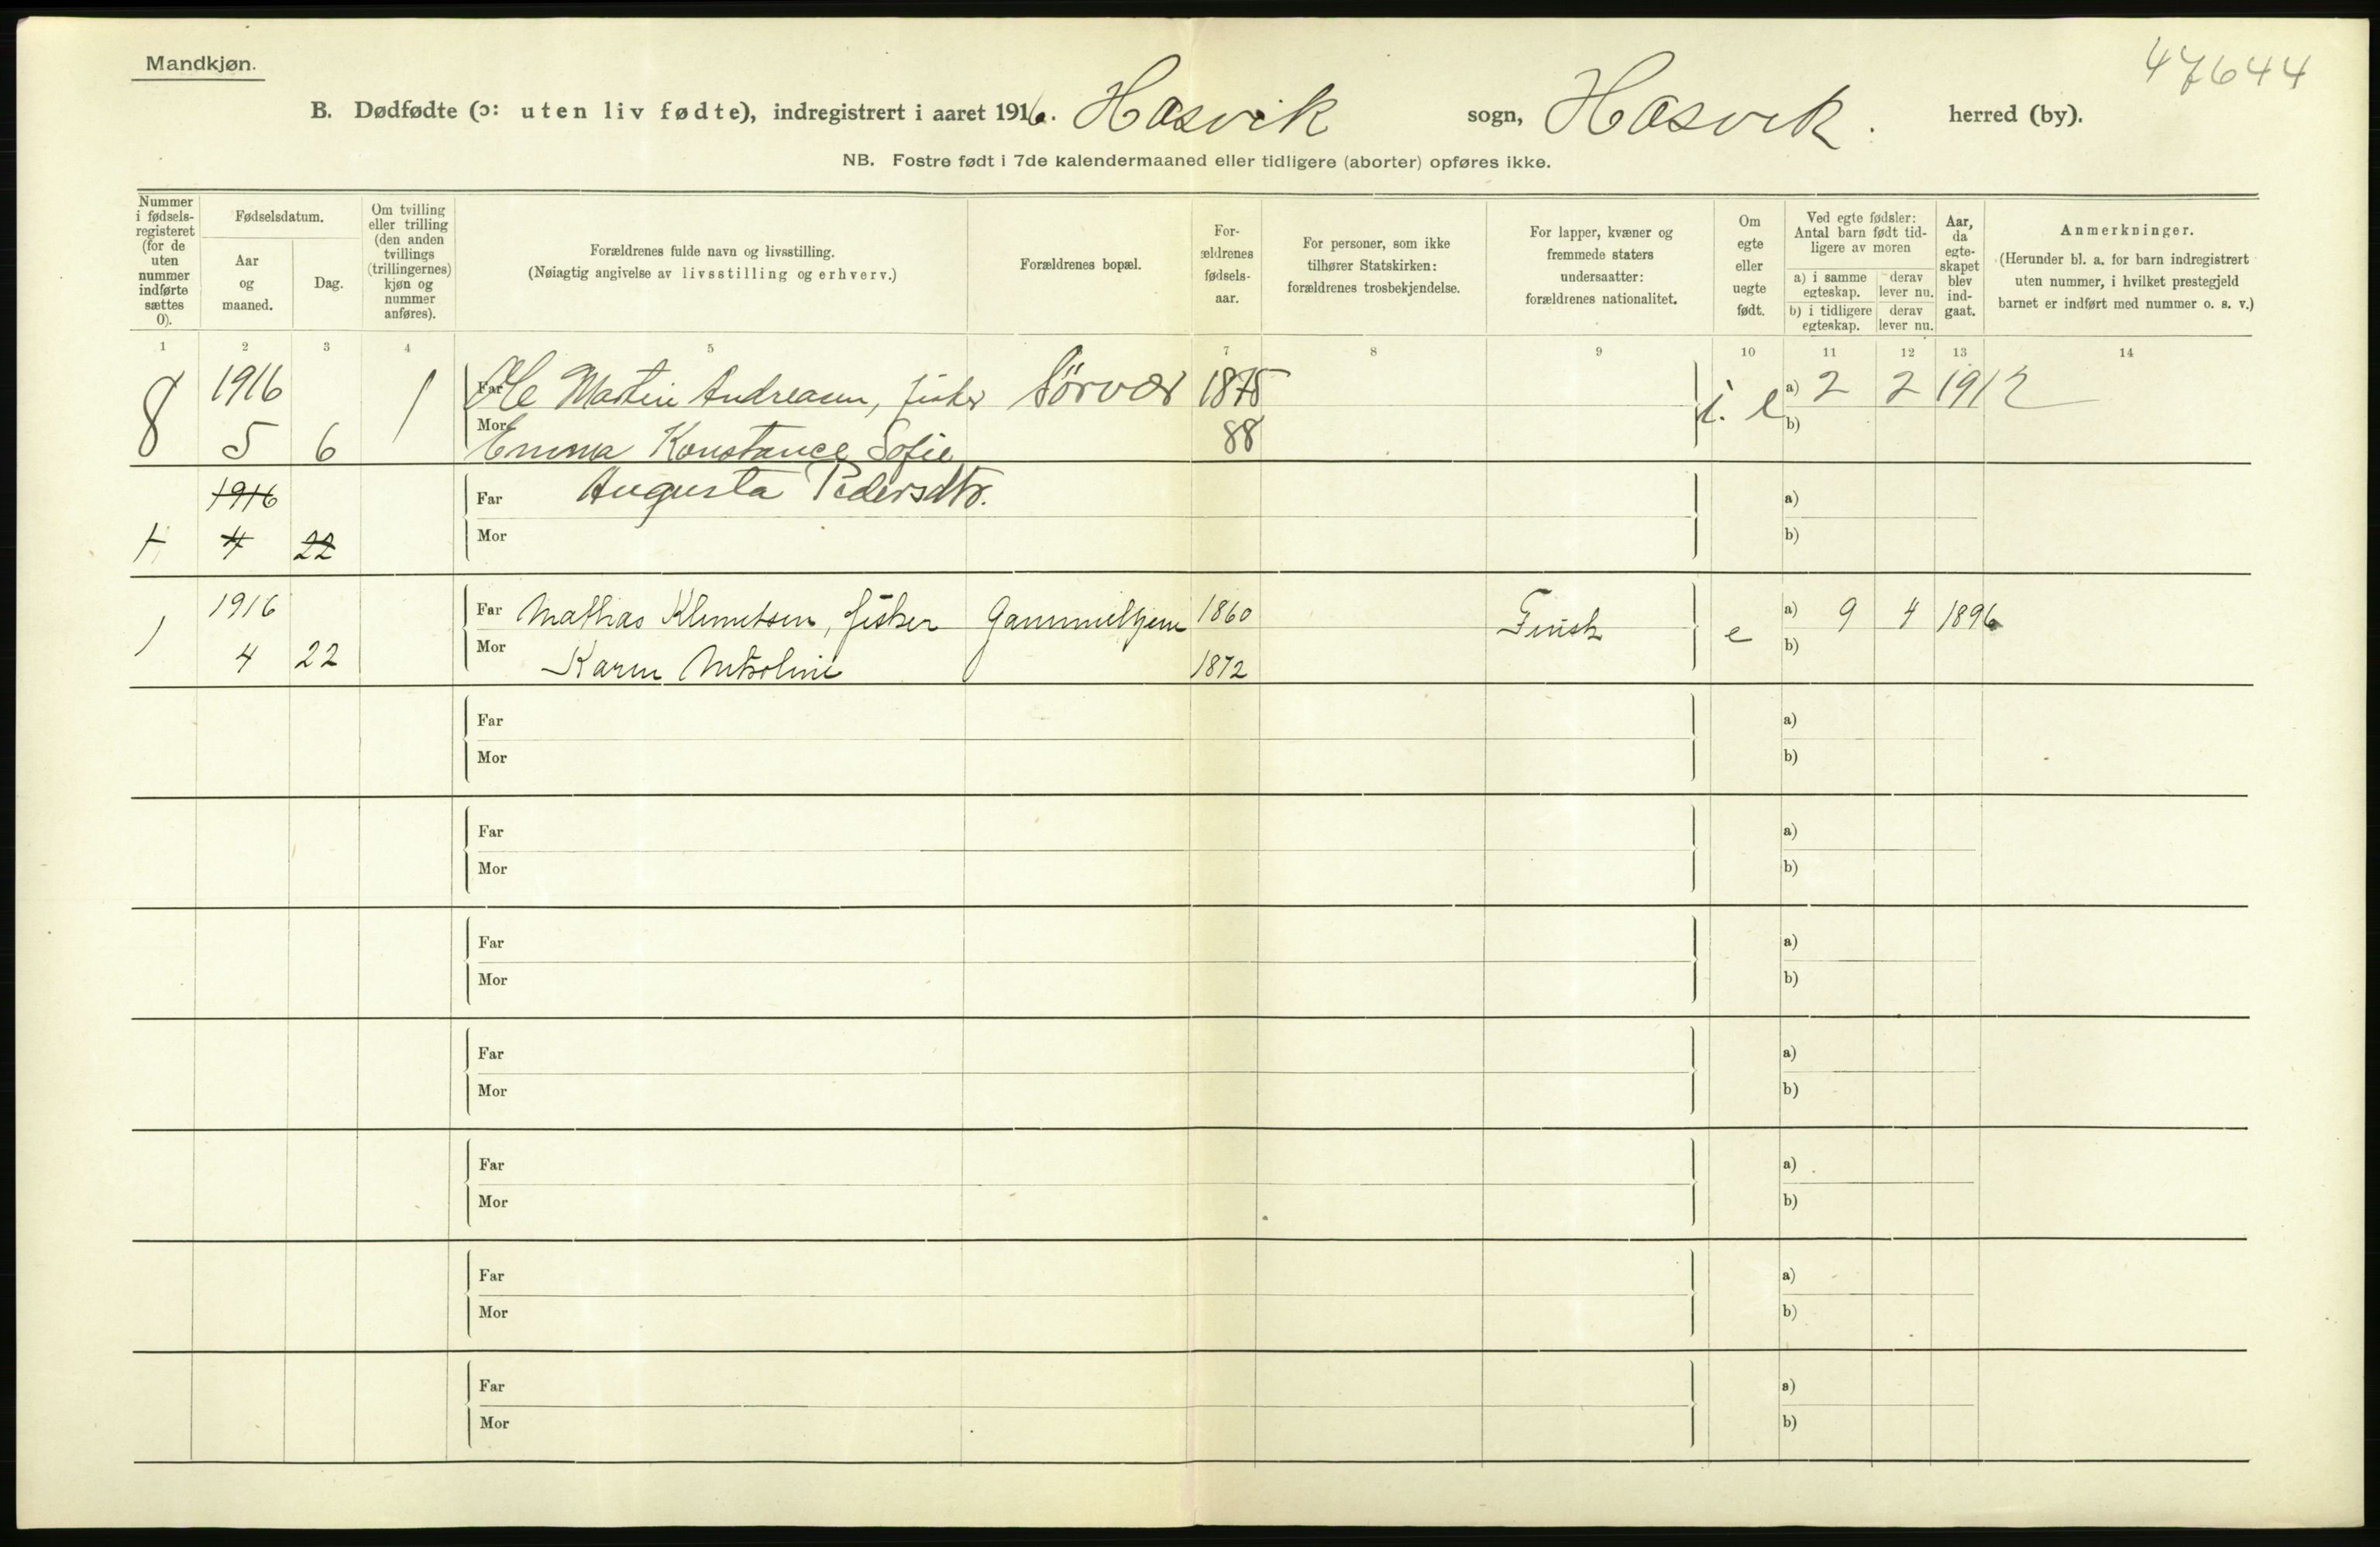 Mandkjøn.
47644
B. Dødfødte (ɔ: uten liv fødte), indregistrert i aaret 1916. Hasvik sogn, Hasvik. herred (by).
NB. Fostre født i 7de kalendermaaned eller tidligere (aborter) opføres ikke.
Nummer i fødsels-registeret (for de uten nummer indførte sættes 0).
Fødselsdatum.
Aar og maaned.
Dag.
Om tvilling eller trilling (den anden tvillings (trillingernes) kjøn og nummer anføres).
Forældrenes fulde navn og livsstilling.
(Nøiagtig angivelse av livsstilling og erhverv.)
Forældrenes bopæl.
For-ældrenes fødsels-aar.
For personer, som ikke tilhører Statskirken: forældrenes trosbekjendelse.
For lapper, kvæner og fremmede staters undersaatter: forældrenes nationalitet.
Om egte eller uegte født.
Ved egte fødsler: Antal barn født tid-ligere av moren
a) i samme egteskap.
derav lever nu.
b) i tidligere egteskap.
derav lever nu.
Aar, da egte-skapet blev ind-gaat.
Anmerkninger.
(Herunder bl. a. for barn indregistrert uten nummer, i hvilket prestegjeld barnet er indført med nummer o. s. v.)
1 2 3 4 5 7 8 9 10 11 12 13 14
8 1916 1 Far Ole Martin Andreasen, fisker Sörvær 1875 i. e a) 2 2 1912
5 6 Mor Emma Konstance Sofie 88 b)
1916 Far Augusta Pedersdtr. a)
1 4 22 Mor b)
1 1916 Far Mathias Klemetsen, fisker Gammelhjem 1860 Finsk e a) 9 4 1896
4 22 Mor Karen 1872 b)
Far a)
Mor b)
Far a)
Mor b)
Far a)
Mor b)
Far a)
Mor b)
Far a)
Mor b)
Far a)
Mor b)
Far a)
Mor b)